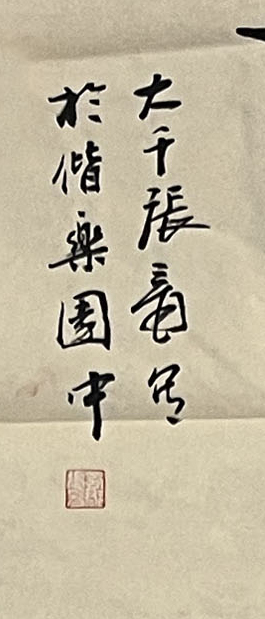 大千張爰
於偕樂園中